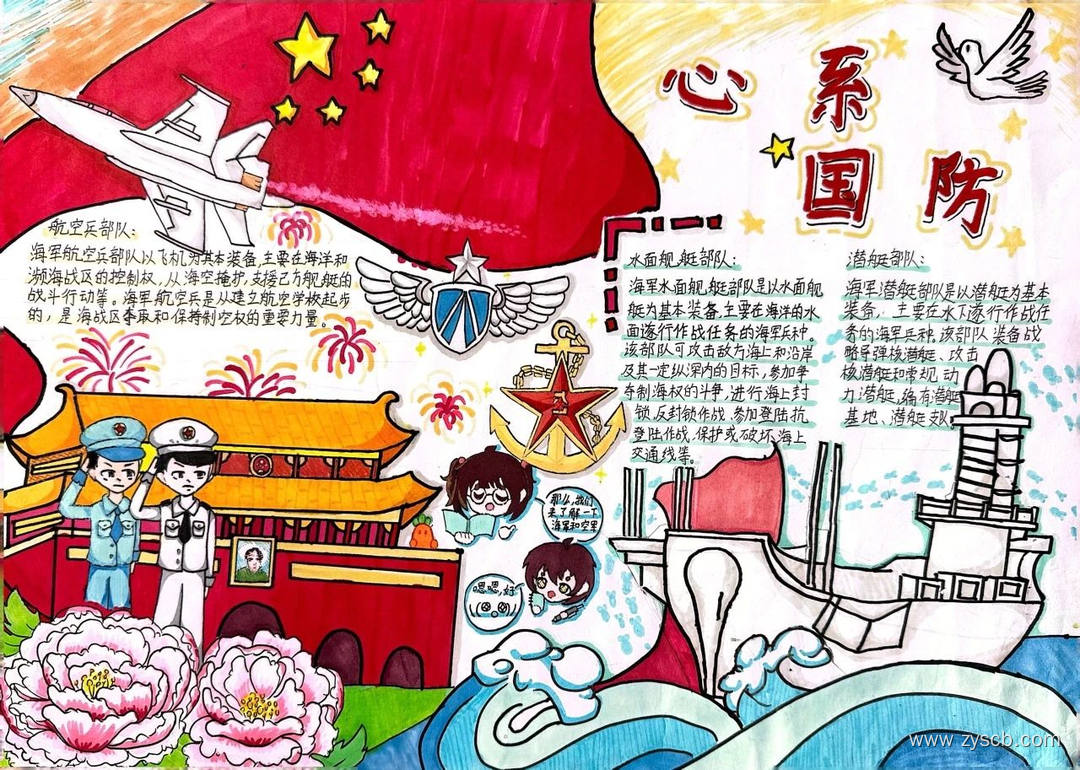 心系
国防
航空兵部队:
海军航空兵部队以飞机为其本装备,主要在海洋和
濒海战区的控制权,从海空掩护,支援己方舰艇的
战斗行动等。海军航空兵是从建立航空学校起步
的,是海战区夺取和保持制空权的重要力量。
水面舰艇部队:
海军水面舰艇部队是以水面舰
艇为基本装备,主要在海洋的水
面遂行作战任务的海军兵种。
该部队可攻击敌方海上和沿岸
及其一定纵深内的目标,参加争
夺制海权的斗争,进行海上封
锁,反封锁作战,参加登陆抗
登陆作战,保护或破坏海上
交通线等。
潜艇部队:
海军潜艇部队是以潜艇为基本
装备,主要在水下遂行作战任
务的海军兵种。该部队装备战
略导弹核潜艇、攻击
核潜艇和常规动
力潜艇,编有潜艇
基地、潜艇支队
八一
那么,我们
来了解一下
海军和空军
嗯嗯,好
www.zyscb.com